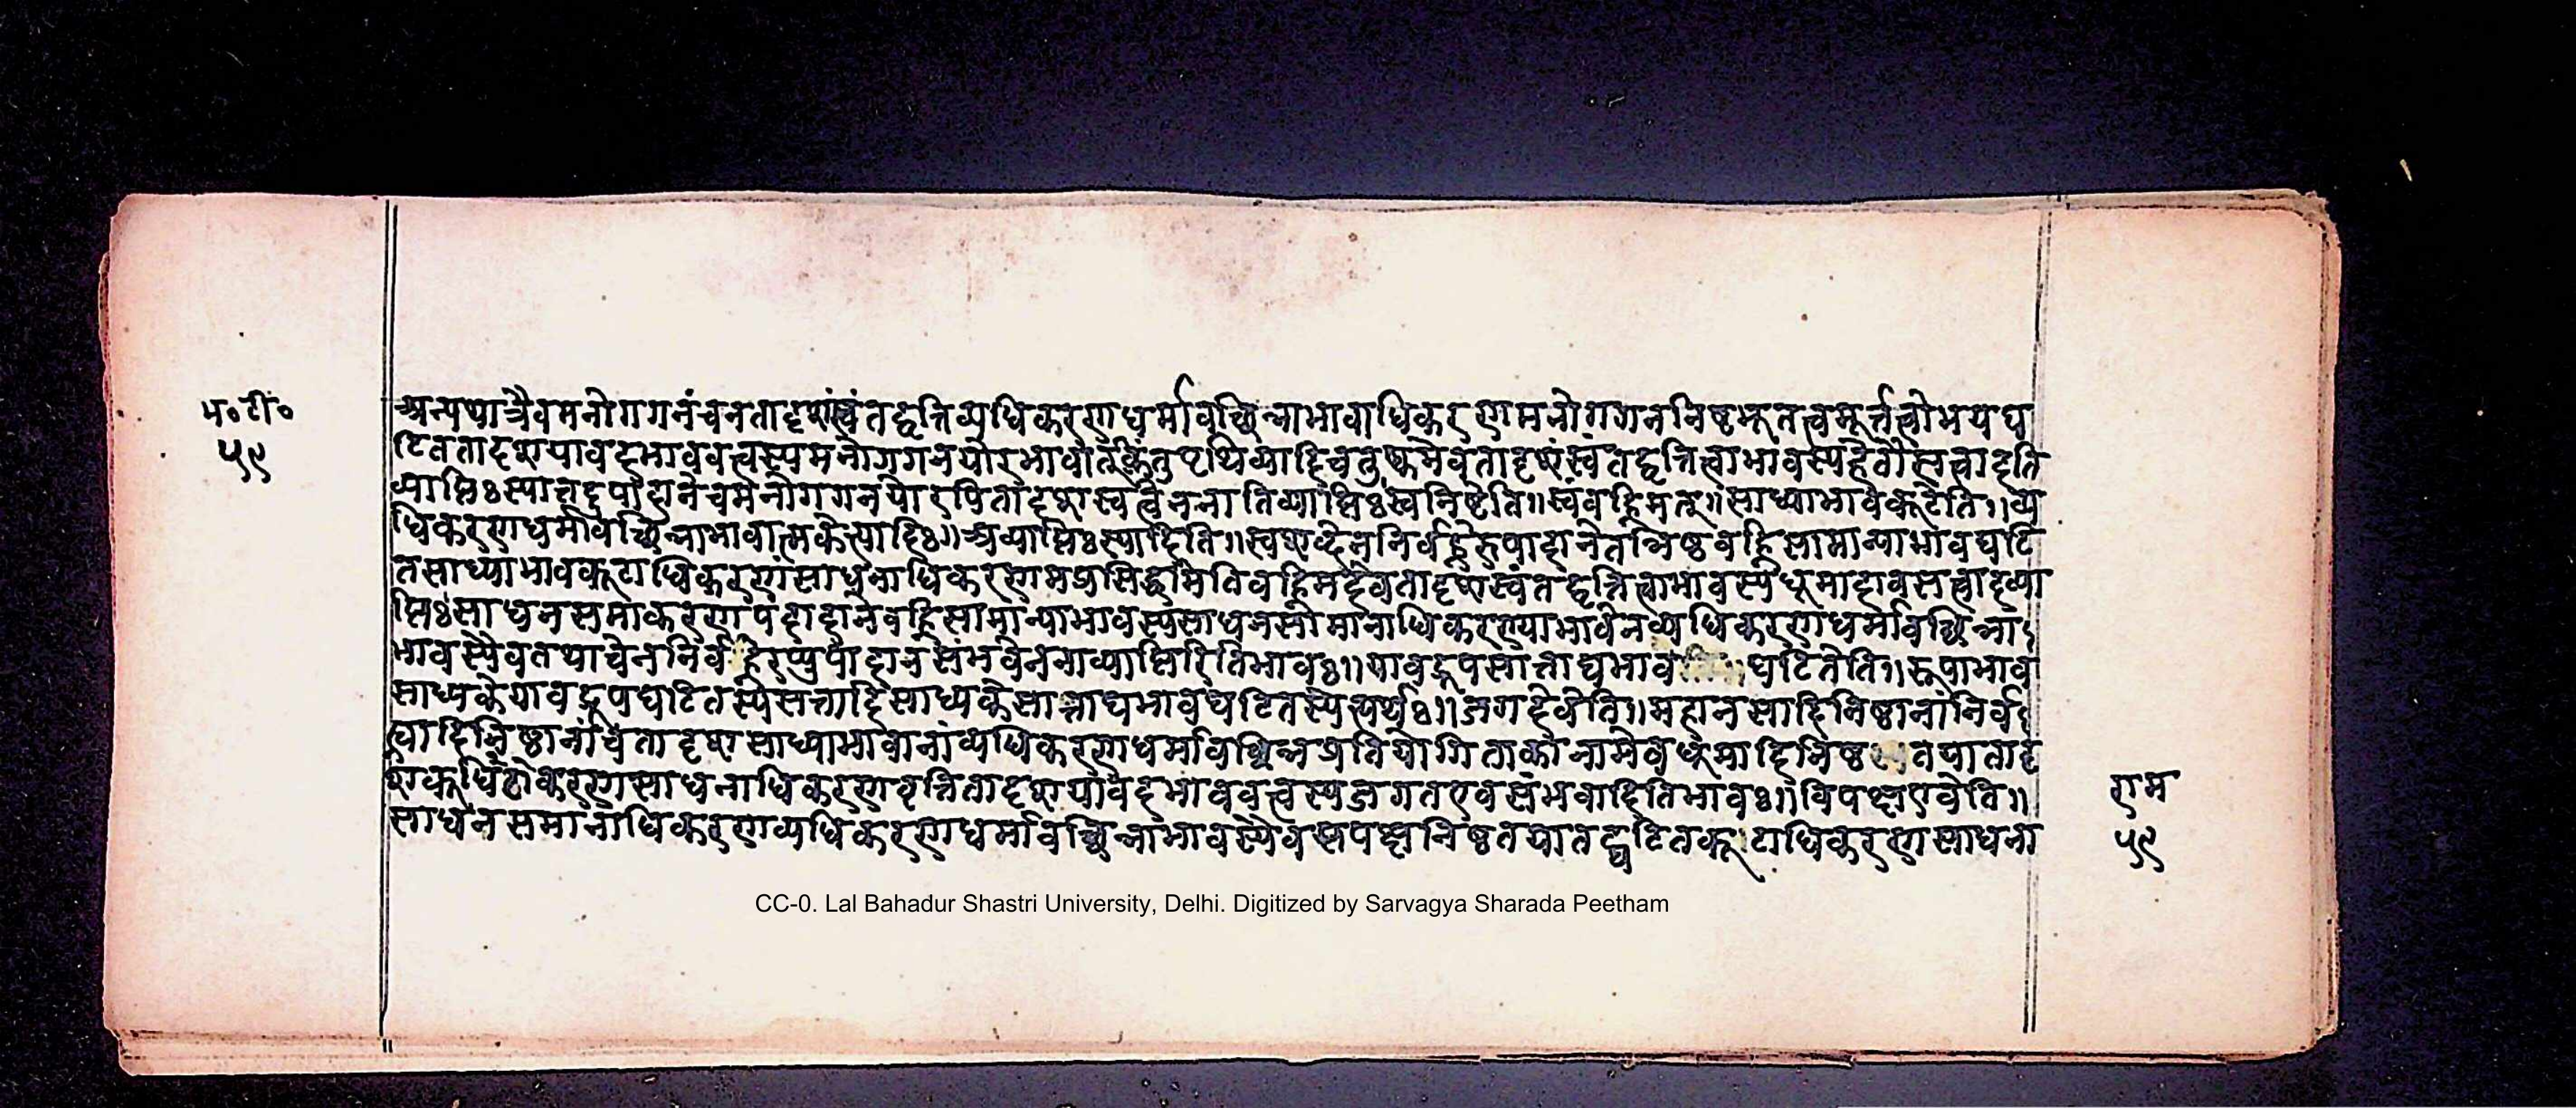 प॰टी॰
५९
अन्यथाचैवमनोगगनंचनतादृशंस्वंतद्वृत्तिव्यधिकरणधर्मावच्छिन्नाभावाधिकरणमनोगगननिष्ठभूतत्वमूर्त्तत्वोभयघ
टिततादृशयावदभाववत्त्वस्यमनोगगनयोरभावात्किंतुपृथिव्यादिचतुष्कमेवतादृशंस्वंतद्वृत्तित्वाभावस्यहेतौसत्वादति
व्याप्तिःस्यात्तद्रूपोपादानेचमनोगगनयोरपितादृशस्वत्वेनतातिव्याप्तिःस्वनिष्ठेति॥स्वंवह्निमत्॥साध्याभावकूटेति॥व्य
धिकरणधर्मावच्छिन्नाभावात्मकेत्यादिः॥अव्याप्तिःस्यादिति॥स्वशब्देननिर्वह्नेरुपादानेतन्निष्ठवह्निसामान्याभावघटि
तसाध्याभावकूटाधिकरणंसाधनाधिकरणमप्रसिद्धमितिवह्निमदेवतादृशस्वंतद्वृत्तित्वाभावस्यधूमादावसत्त्वादव्या
प्तिःसाधनसमाकरणपदादानेवह्निसामान्याभावस्यसाधनसामानाधिकरण्याभावेनव्यधिकरणधर्मावच्छिन्ना
भावस्यैवतथाचेननिर्वह्नेरप्युपादानसंभवेननाव्याप्तिरितिभावः॥यावद्रूपसात्ताद्यभाव घटितेति॥रूपाभाव
साध्यकेयावद्रूपघटितस्यसत्तादिसाध्यकेसात्ताद्यभावघटितस्येत्यर्थः॥जगदेवेति॥महानसादिनिष्ठानांनिर्व
त्वादिनिष्ठानांचतादृशसाध्याभावानांव्यधिकरणधर्मावच्छिन्नप्रतियोगिताकानामेवधूमादिनिष्ठ तयातादृ
शकूटाधिकरणसाधनाधिकरणवृत्तितादृशयावदभाववत्त्वस्यजगतएवसंभवादितिभावः॥विपक्षएवेति॥
साधनसमानाधिकरणव्यधिकरणधर्मावच्छिन्नाभावस्यैवसपक्षनिष्ठतयातद्घटितकूटाधिकरणसाधना
राम
५९
CC-0. Lal Bahadur Shastri University, Delhi. Digitized by Sarvagya Sharada Peetham